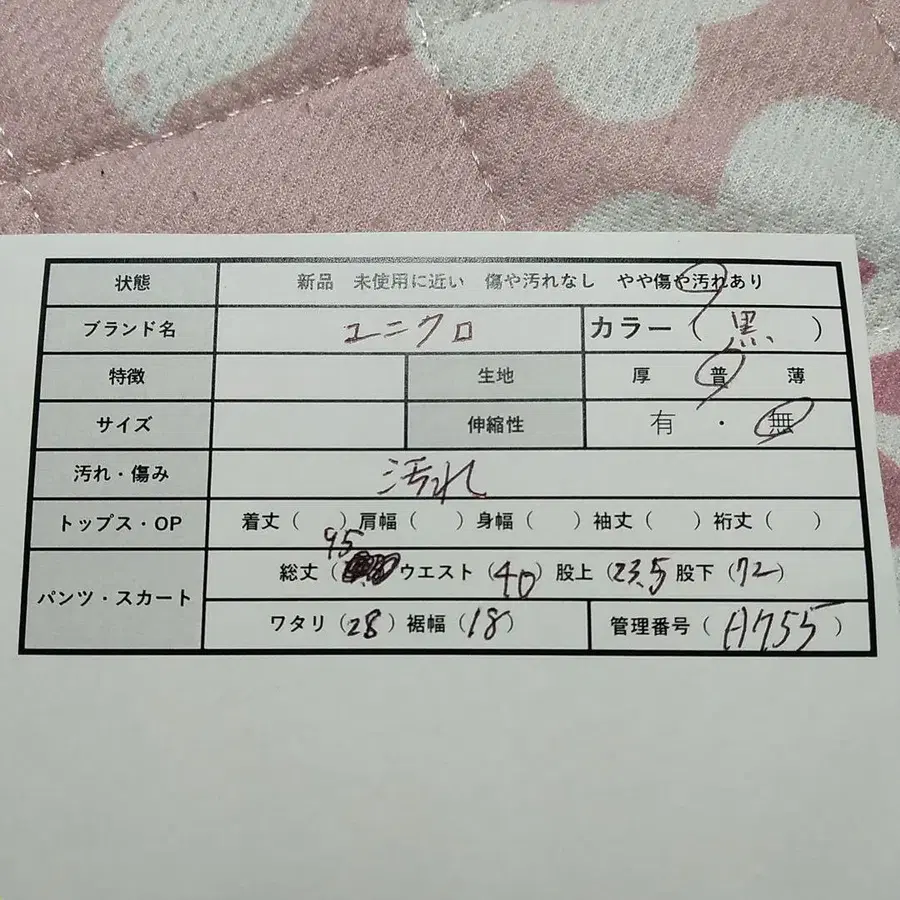 状態 新品 未使用に近い 傷や汚れなし やや傷や汚れあり
ブランド名 ユニクロ カラー（黒）
特徴 生地 厚 普 薄
サイズ 伸縮性 有・無
汚れ・傷み 汚れ
トップス・OP 着丈（ ）肩幅（ ）身幅（ ）袖丈（ ）裄丈（ ）
パンツ・スカート 総丈（95）ウエスト（40）股上（23.5）股下（72）
ワタリ（28）裾幅（18） 管理番号（A755）